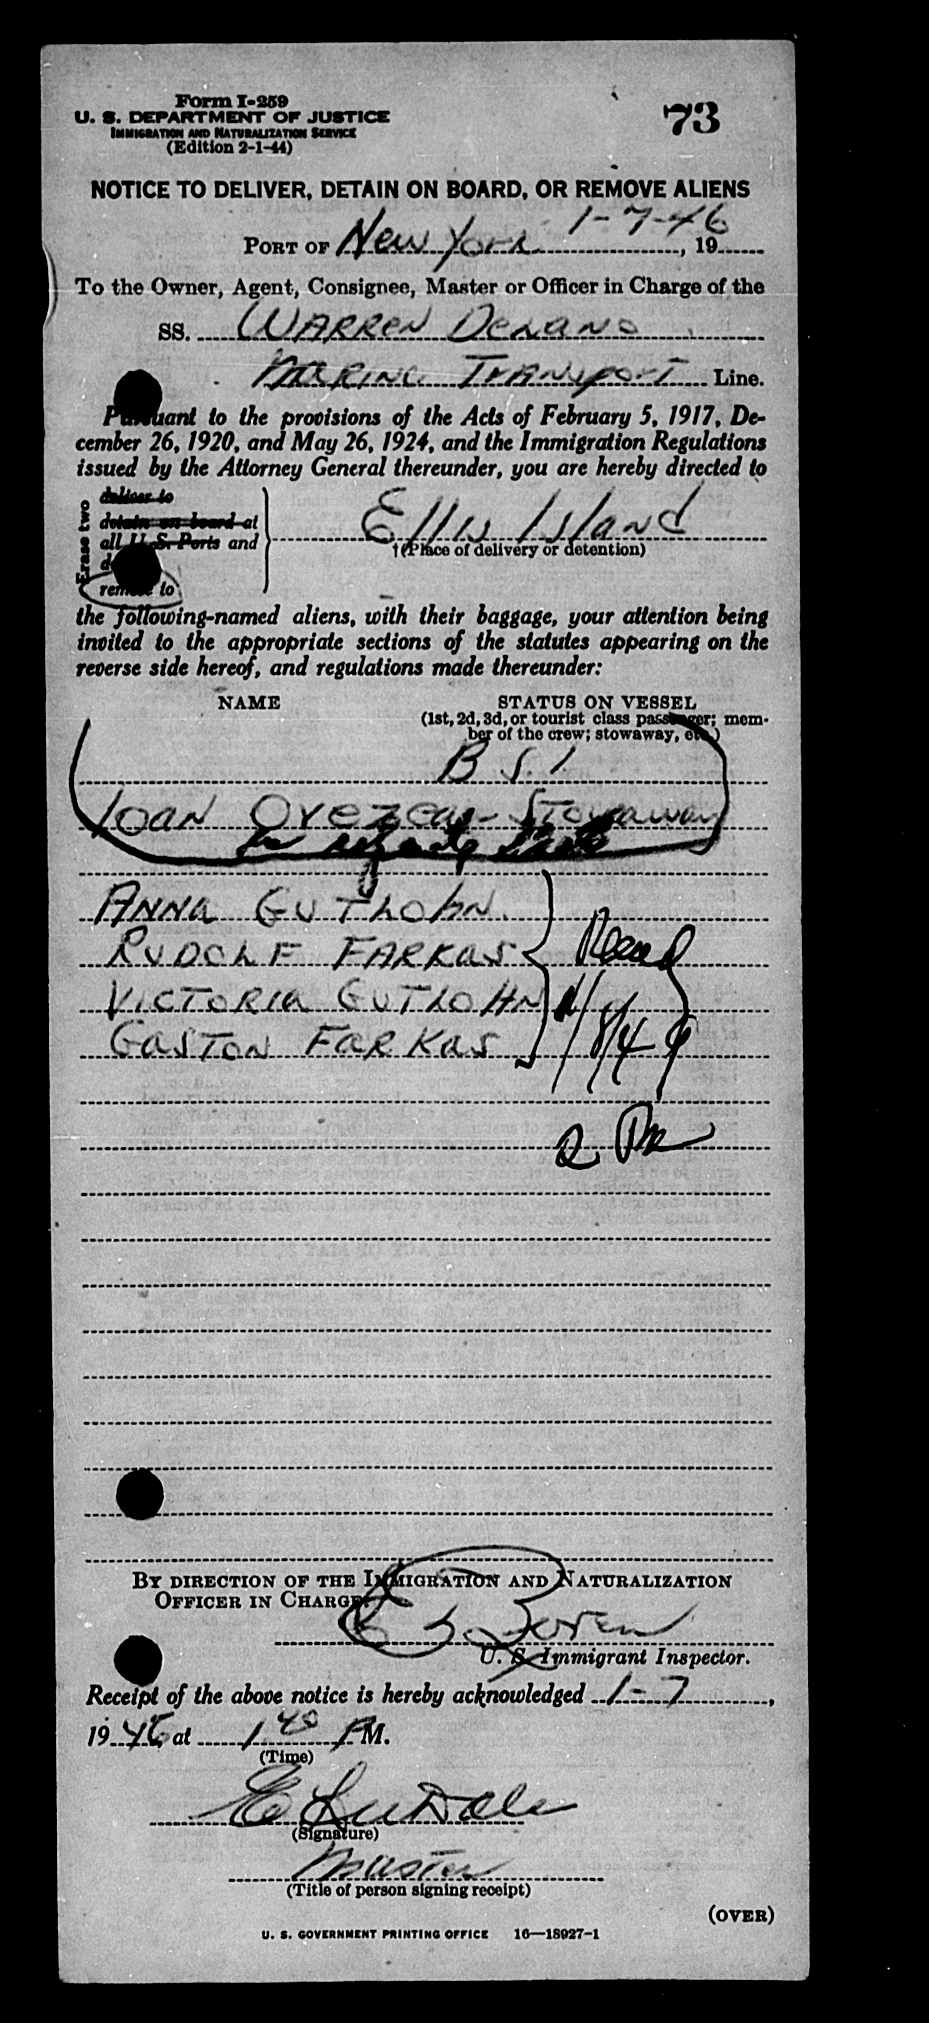 Form I-259
U. S. DEPARTMENT OF JUSTICE
IMMIGRATION AND NATURALIZATION SERVICE
(Edition 2-1-44)
73
NOTICE TO DELIVER, DETAIN ON BOARD, OR REMOVE ALIENS
PORT OF New York 1-7-46, 19
To the Owner, Agent, Consignee, Master or Officer in Charge of the
SS. WARREN DELANO
MARINE TRANSPORT Line.
Pursuant to the provisions of the Acts of February 5, 1917, De-
cember 26, 1920, and May 26, 1924, and the Immigration Regulations
issued by the Attorney General thereunder, you are hereby directed to
Erase two
deliver to
detain on board at
all U. S. Ports and
remove to
Ellis Island
†(Place of delivery or detention)
the following-named aliens, with their baggage, your attention being
invited to the appropriate sections of the statutes appearing on the
reverse side hereof, and regulations made thereunder:
NAME
STATUS ON VESSEL
(1st, 2d, 3d, or tourist class passenger; mem-
ber of the crew; stowaway, etc.)
B S. I.
IOAN - STOWAWAY
ANNA GUTLOHN
RUDOLF FARKAS
VICTORIA GUTLOHN
GASTON FARKAS
Recd
1/8/46
2 PM
BY DIRECTION OF THE IMMIGRATION AND NATURALIZATION
OFFICER IN CHARGE.
U. S. Immigrant Inspector.
Receipt of the above notice is hereby acknowledged 1-7,
19 46, at 1 40 P M.
(Time)
(Signature)
Master
(Title of person signing receipt)
(OVER)
U. S. GOVERNMENT PRINTING OFFICE 16—18927-1